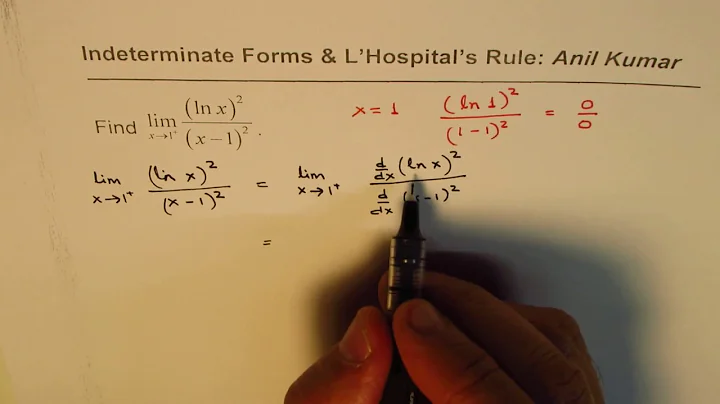 Indeterminate Forms & L'Hospital's Rule: Anil Kumar
Find lim x→1⁺ (ln x)² / (x − 1)² .
x = 1 (ln 1)² / (1 − 1)² = 0/0
lim x→1⁺ (ln x)² / (x − 1)² = lim x→1⁺ d/dx (ln x)² / d/dx ( − 1)²
=